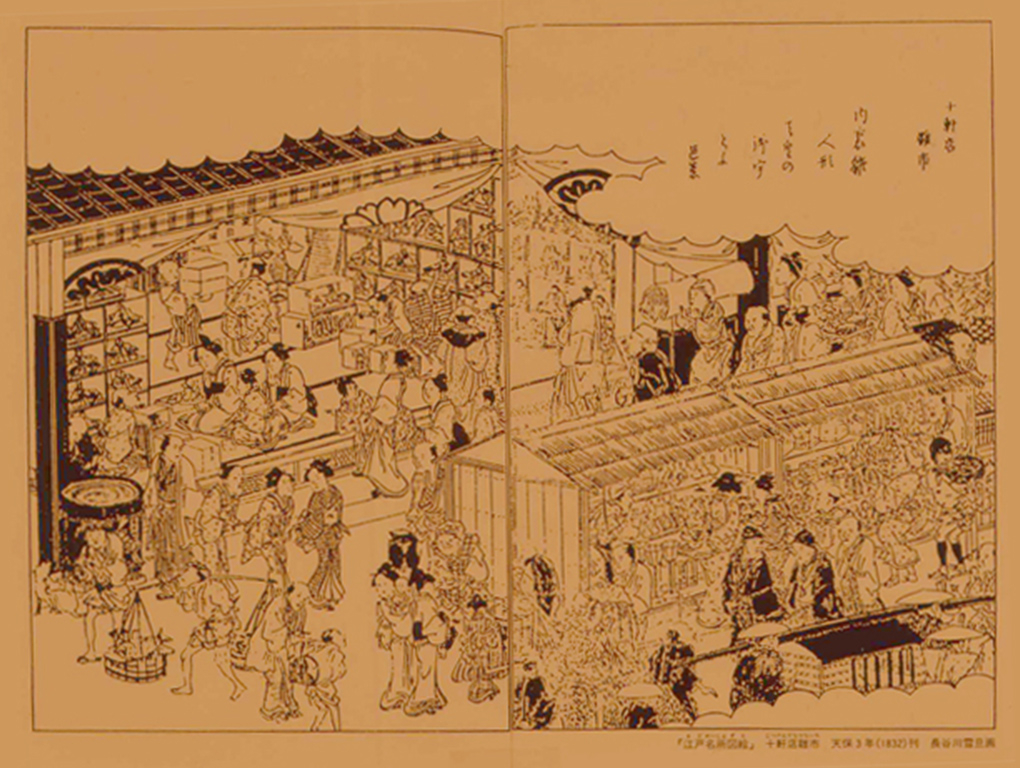 十軒店
雛市
内裏雛
人形
御宇
芭蕉
『江戸名所図絵』 十軒店雛市 天保3年(1832)刊 長谷川雪旦画